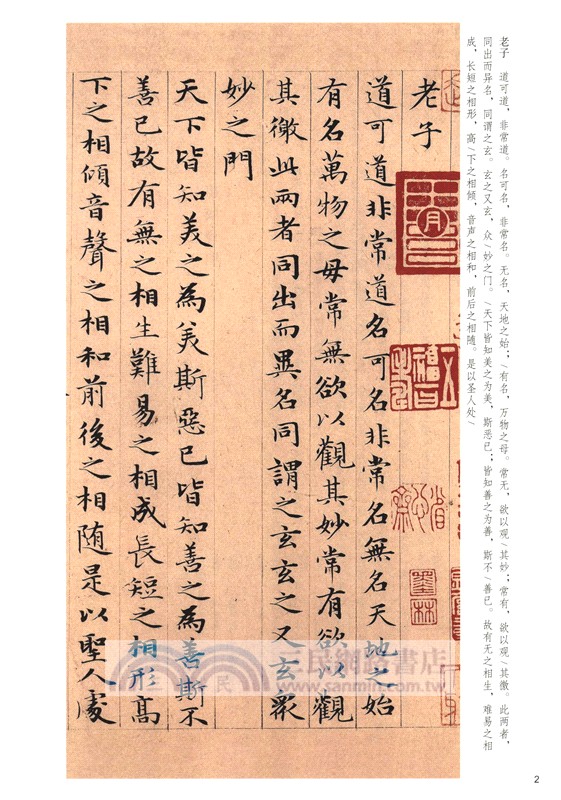 老子　道可道，非常道。名可名，非常名。无名，天地之始；/有名，万物之母。常无，欲以观/其妙；常有，欲以观/其徼。此两者，
同出而异名，同谓之玄。玄之又玄，众/妙之门。/天下皆知美之为美，斯恶已；皆知善之为善，斯不/善已。故有无之相生，难易之相
成，长短之相形，高/下之相倾，音声之相和，前后之相随。是以圣人处/
老子
道可道非常道名可名非常名無名天地之始
有名萬物之母常無欲以觀其妙常有欲以觀
其徼此兩者同出而異名同謂之玄玄之又玄眾
妙之門
天下皆知美之為美斯惡已皆知善之為善斯不
善已故有無之相生難易之相成長短之相形高
下之相傾音聲之相和前後之相随是以聖人處
墨林
三民網路書店
www.sanmin.com.tw
2